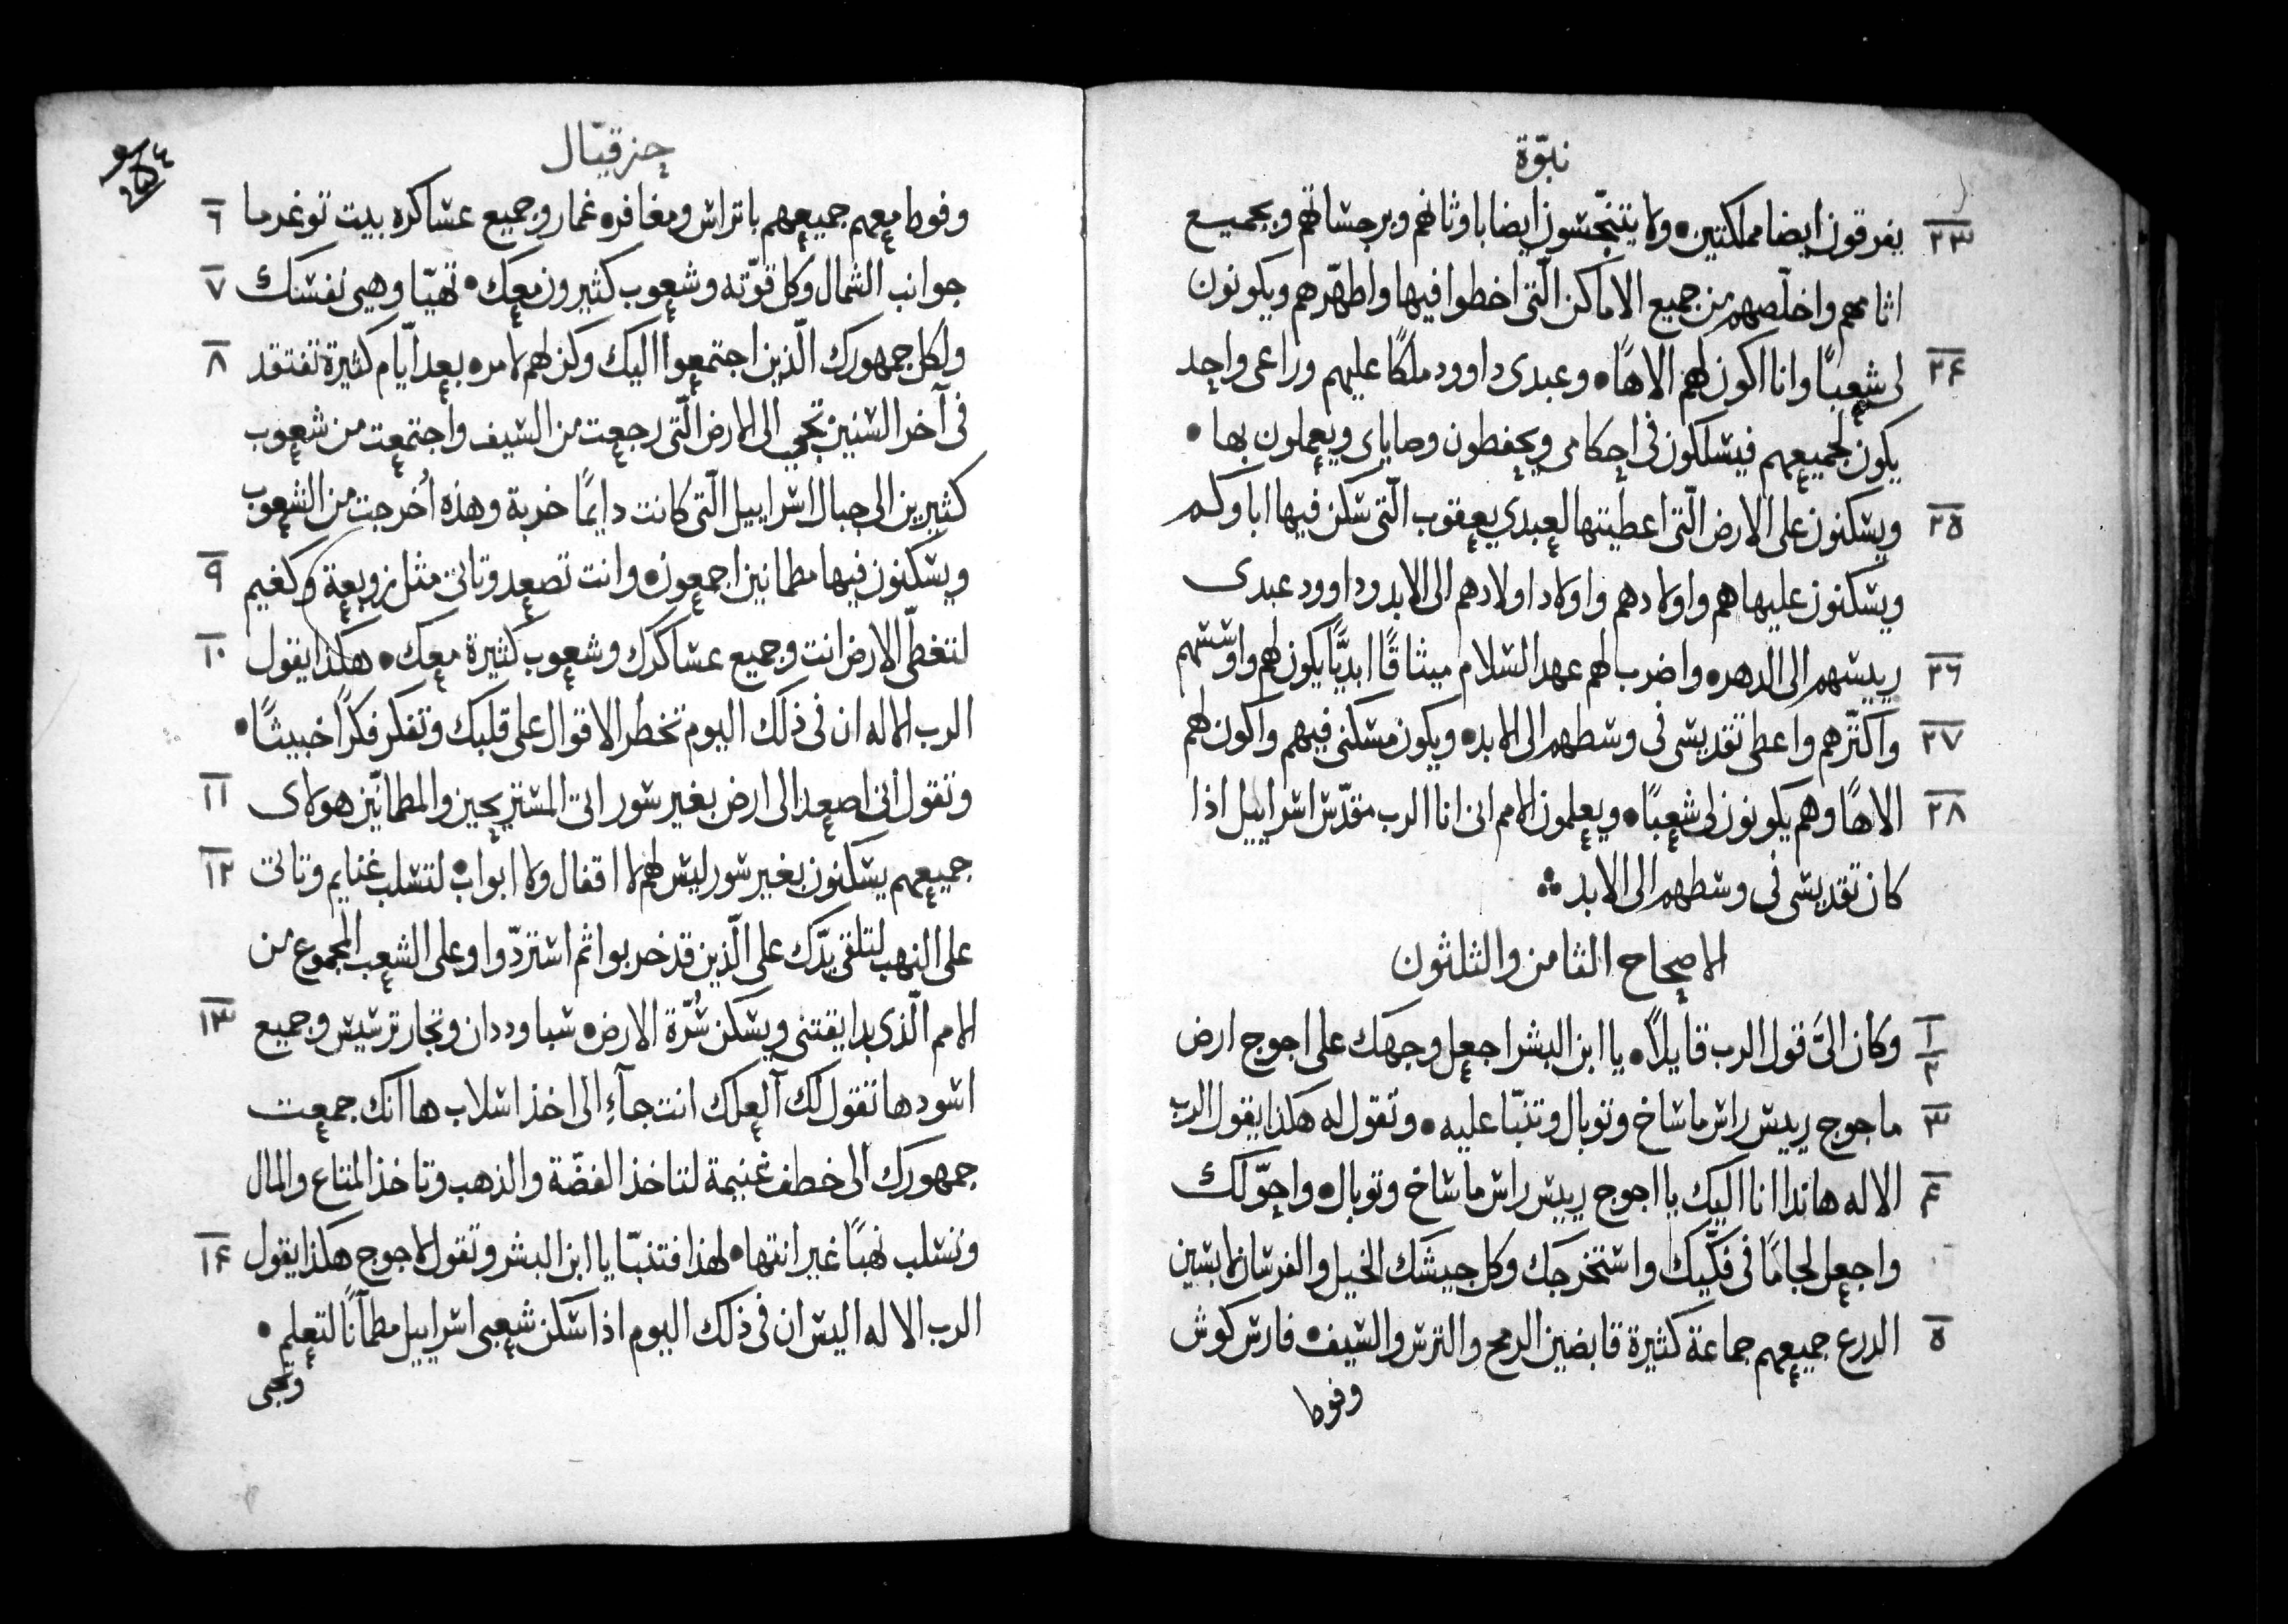 نبوّة
٢٣ يفرقون ايضا مملكتين • ولا يتنجّسون ايضا باوثانهم وبرجساتهم وبجميع
اثامهم واخلّصهم من جميع الاماكن الّتى اخطوا فيها واطهّرهم ويكونون
٢٤ لى شعبًا وانا اكون لهم الاهًا • وعبدى داوود ملكًا عليهم وراعى واحد
يكون لجميعهم فيسلكون فى احكامى ويحفظون وصاياى ويعملون بها •
٢٥ ويسكنون على الارض الّتى اعطيتها لعبدي يعقوب الّتى سكن فيها اباوكم
ويسكنون عليها هم واولادهم واولاد اولادهم الى الابد وداوود عبدى
٢٦ رييسهم الى الدهر • واضرب لهم عهد السلام ميثاقًا ابديًّا يكون لهم واوسسهم
٢٧ واكثّرهم واعطى تقديسى فى وسطهم الى الابد • ويكون مسكنى فيهم واكون لهم
٢٨ الاهًا وهم يكونون لى شعبًا • ويعلمون الامم انى انا الرب مقدّس اسراييل اذا
كان تقديسى فى وسطهم الى الابد ∴
الاصحاح الثامن والثلثون
١ ٢ وكان الىَّ قول الرب قايلاً • يا ابن البشر اجعل وجهك على اجوج ارض
٣ ماجوج رييس راس ماساخ وتوبال وتنبّا عليه • وتقول له هكذا يقول الرب
٤ الاله هانذا انا اليك يا اجوج رييس راس ماساخ وتوبال • واحوّلك
واجعل لجامًا فى فكّيك واستخرجك وكل جيشك الخيل والفرسان لابسين
٥ الدرع جميعهم جماعة كثيرة قابضين الرمح والترس والسيف • فارس كوش
وفوطا
حزقيّال
٢٥٤
٦ وفوطا معهم جميعهم باتراس ومغافر • غمار وجميع عساكره بيت توغرما
٧ جوانب الشمال وكل قوّته وشعوب كثيرون معك • تهيّا وهيى نفسك
٨ ولكل جمهورك الّذين اجتمعوا اليك وكن لهم لامره • بعد ايّام كثيرة تفتقد
فى آخر السنين تجى الى الارض الّتى رجعت من السيف واجتمعت من شعوب
كثيرين الى جبال اسراييل الّتى كانت دايمًا خربة وهذه اُخرجت من الشعوب
٩ ويسكنون فيها مطمانين اجمعون • وانت تصعد وتاتى مثل زوبعة وكغيم
١٠ لتغطّى الارض انت وجميع عساكرك وشعوب كثيرة معك • هكذا يقول
الرب الاله ان فى ذلك اليوم تخطر الاقوال على قلبك وتفكر فكرًا خبيثًا •
١١ وتقول انى اصعد الى ارض بغير سور اتى المستريحين والمطمانّين هولاى
١٢ جميعهم يسكنون بغير سور ليس لهم لا اقفال ولا ابواب • لتسلب غنايم وتاتى
على النهب لتلقى يدّك على الّذين قد خربوا ثم استردّوا وعلى الشعب المجموع من
١٣ الامم الّذى بدا يقتنى ويسكن سُرّة الارض • سبا وددان وتجار ترسيس وجميع
اسودها تقول لك آلعلك انت جآءٍ الى اخذ اسلاب ها انك جمعت
جمهورك الى خطف غنيمة لتاخذ الفضّة والذهب وتاخذ المتاع والمال
١٤ وتسلب نهبًا غير انتها • لهذا فتنبّا يا ابن البشر وتقول لاجوج هكذا يقول
الرب الاله اليس ان فى ذلك اليوم اذا سكن شعبى اسراييل مطمآنًا لتعلم •
وتجى